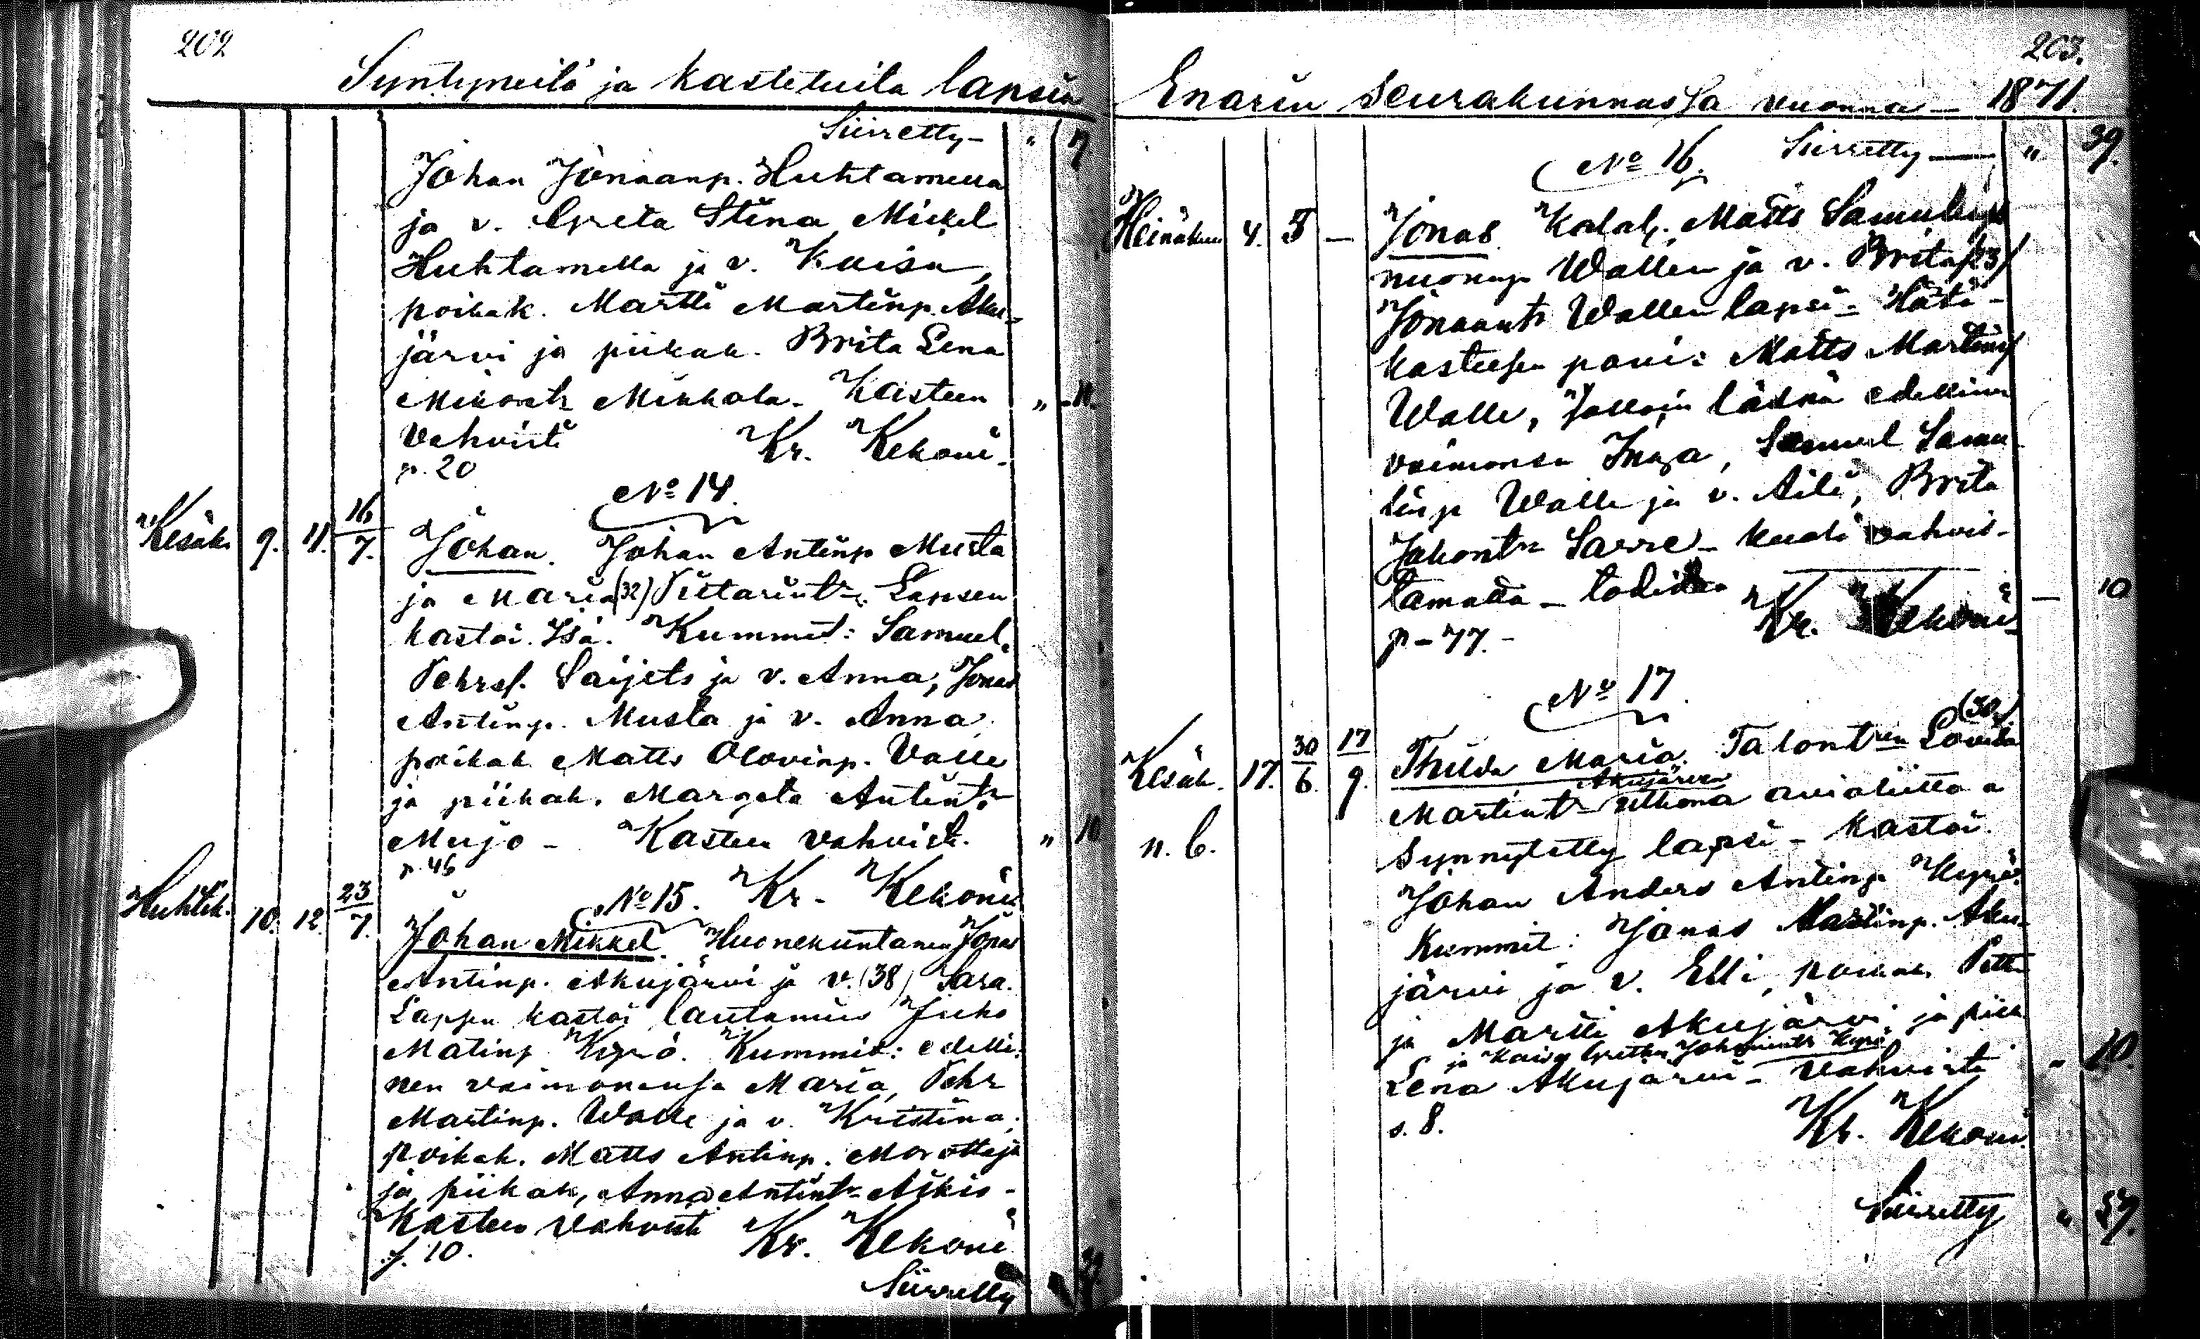 202
Syntyneitä ja kastetuita lapsia
Siirretty — " 7
Johan Jonaanp. Huhtamella
ja v. Greta Stina, Mickel
Huhtamella ja v. Kaisa,
poikak. Martti Martinp. Aku-
järvi ja piikak. Brita Lena
Mikontr Mikkola. Kasteen " -11.
vahvisti Kr. Kekoni.
p. 20
No 14.
Kesäk. 9. 11. 16/7. Johan. Johan Antinp Musta
ja Maria (32) Pietarintr. Lapsen
kastoi Isä. Kummit: Samuel
Pehrsf. Saijets ja v. Anna, Jonas
Antinp. Musta ja v. Anna,
poikak Matts Olovinp. Valle
ja piikak. Margeta Antintr
Mujo - Kasteen vahvisti. " 10
p. 46 Kr. Kekoni
No 15.
Huhtik. 10. 12. 23/7. Johan Mikkel. Huonekuntamen Jonas
Antinp. Akujärvi ja v. (38) Sara.
Lapsen kastoi lautamies Juho
Matinp Kyrö. Kummit: edelli-
nen vaimonensa Maria, Pehr
Martinp. Walle ja v. Kristina,
poikak. Matts Antinp. Morottaja
ja piikak, Anna Antintr Aikio -
Kasteen vahvisti Kr. Kekoni
f. 10.
Siirretty
203.
Enarin seurakunnassa vuonna — 1871.
No 16. Siirretty — " 39.
Heinäkuu 4. 5 — Jonas. Kalal. Matts Samulinp
nuoremp Wallen ja v. Brita (23)
Jonaantr Wallen lapsi - Hätä-
kasteesen pani: Matts Martinp
Walle, Jolloin läsnä edellinen
vaimonsa Inga, Samuel Samu-
linp Walle ja v. Aili, Brita
Jakontr Sarre - kuoli vahvis-
tamatta - todistaa Kr. Kekoni — 10
p - 77. -
No 17
(30)
Kesäk. 17. 30/6. 17/9. Thilda Maria. Talontren Lovisa
Akujärven
Martintr ulkona avioliitto a
n. b. synnytetty lapsi - kastoi
Johan Anders Antinp Kyrö.
Kummit: Jonas Martinp. Aku-
järvi ja v. Elli, poikak Petter
ja Martti Akujärvi ja piik
ja Kaisa Gretha Johanintr Kyrö
Lena Akujärvi - vahvisti " 10.
s. 8. Kr. Kekoni
Siirretty " 59.